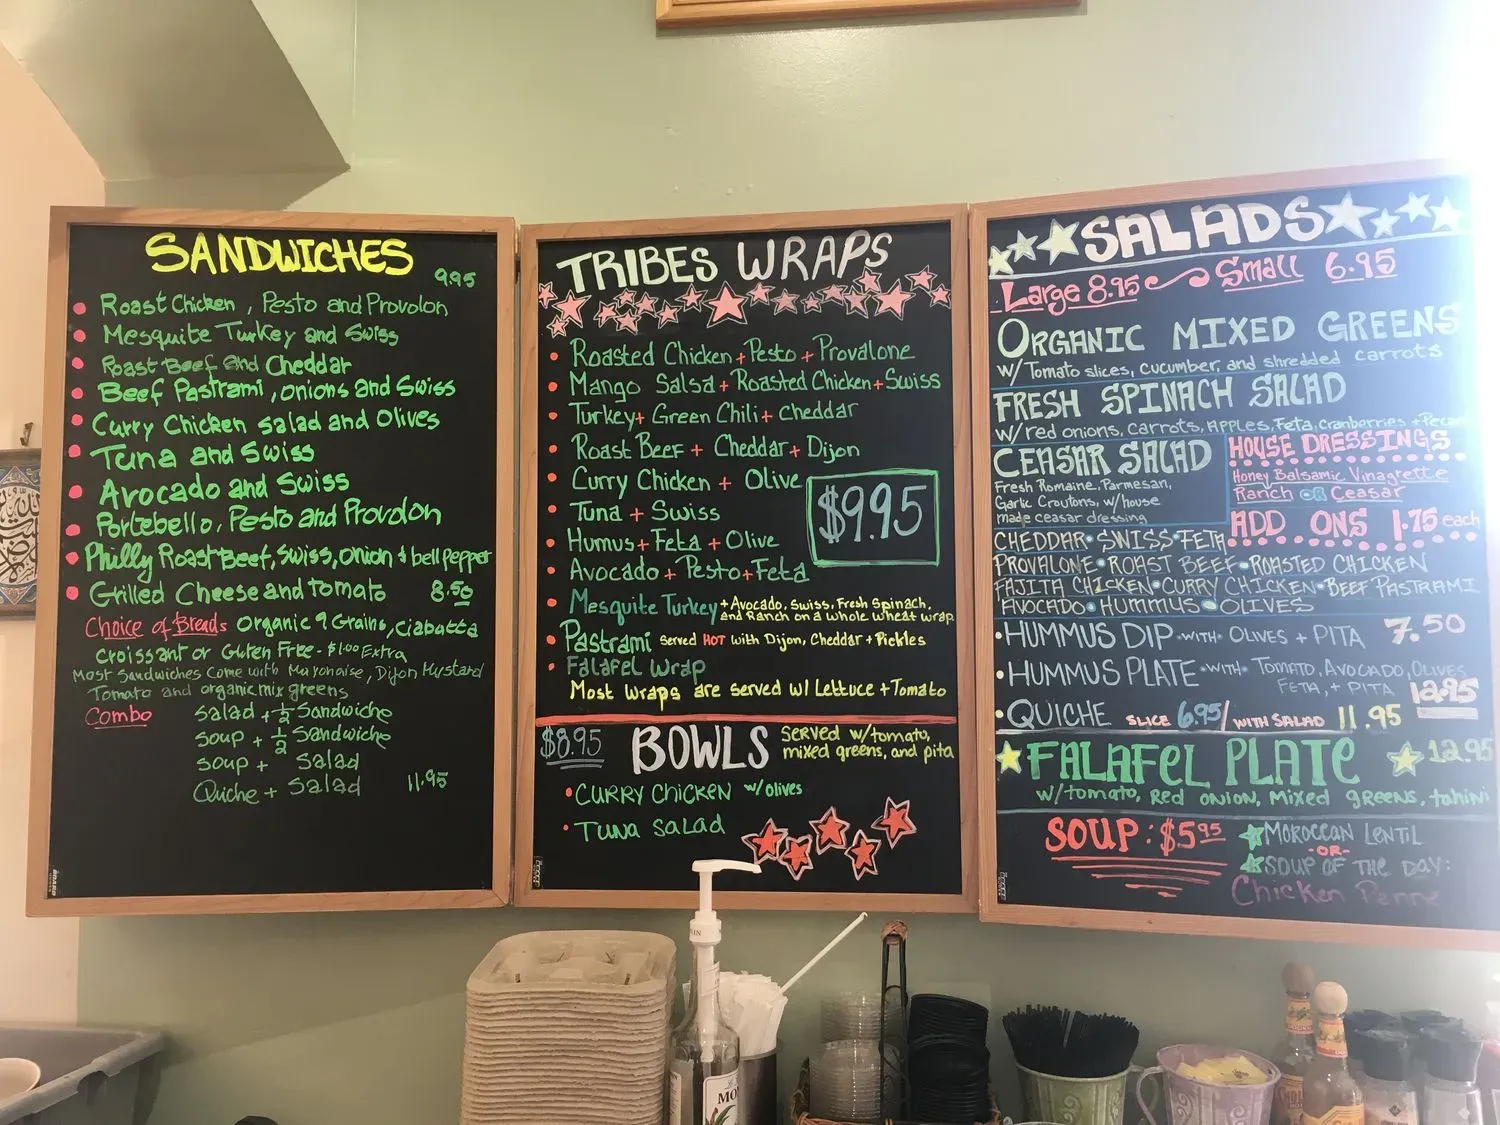 SANDWICHES
9.95
Roast Chicken, Pesto and Provolon
Mesquite Turkey and Swiss
Roast Beef and Cheddar
Beef Pastrami, onions and Swiss
Curry Chicken salad and Olives
Tuna and Swiss
Avocado and Swiss
Portebello, Pesto and Provolon
Philly Roast Beef, Swiss, Onion + bell pepper
Grilled Cheese and tomato 8.50
Choice of Breads Organic 9 Grains, Ciabatta
Croissant or Gluten Free - $1.00 Extra
Most Sandwiches Come with Mayonaise, Dijon Mustard
Tomato and organic mix greens
Combo Salad + 1/2 Sandwiche
Soup + 1/2 Sandwiche
Soup + Salad
Quiche + Salad 11.95
TRIBES WRAPS
Roasted Chicken + Pesto + Provalone
Mango Salsa + Roasted Chicken + Swiss
Turkey + Green Chili + Cheddar
Roast Beef + Cheddar + Dijon
Curry Chicken + Olive
$9.95
Tuna + Swiss
Humus + Feta + Olive
Avocado + Pesto + Feta
Mesquite Turkey + Avocado, Swiss, Fresh Spinach,
and Ranch on a whole wheat wrap
Pastrami Served HOT with Dijon, Cheddar + Pickles
Falafel Wrap
Most Wraps are served w/ Lettuce + Tomato
$8.95 BOWLS Served w/tomato,
mixed greens, and pita
Curry Chicken w/olives
Tuna Salad
SALADS
Large 8.95 Small 6.95
ORGANIC MIXED GREENS
w/ Tomato slices, cucumber, and shredded carrots
FRESH SPINACH SALAD
w/ red onions, Carrots, Apples, Feta, cranberries +
CEASAR SALAD
Fresh Romaine, Parmesan,
Garlic Croutons, w/house
made ceasar dressing
HOUSE DRESSINGS
Honey Balsamic Vinagrette
Ranch OR Ceasar
ADD ONS 1.75 each
CHEDDAR • SWISS • FETA
PROVALONE • ROAST BEEF • ROASTED CHICKEN
FAJITA CHICKEN • CURRY CHICKEN • BEEF PASTRAMI
AVOCADO • HUMMUS • OLIVES
HUMMUS DIP WITH OLIVES + PITA 7.50
HUMMUS PLATE WITH TOMATO, AVOCADO, OLIVES
FETA, + PITA 12.95
QUICHE SLICE 6.95/ WITH SALAD 11.95
FALAFEL PLATE 12.95
w/ tomato, Red onion, Mixed greens, tahini
SOUP: $5.95 MOROCCAN LENTIL
-OR-
SOUP OF THE DAY:
Chicken Penne
MO